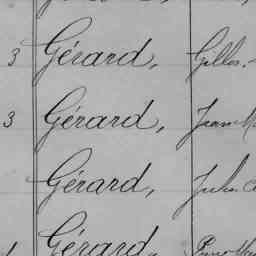 3 Gérard, Gilles.
3 Gérard, Jean M
Gérard, Jules
Gérard,